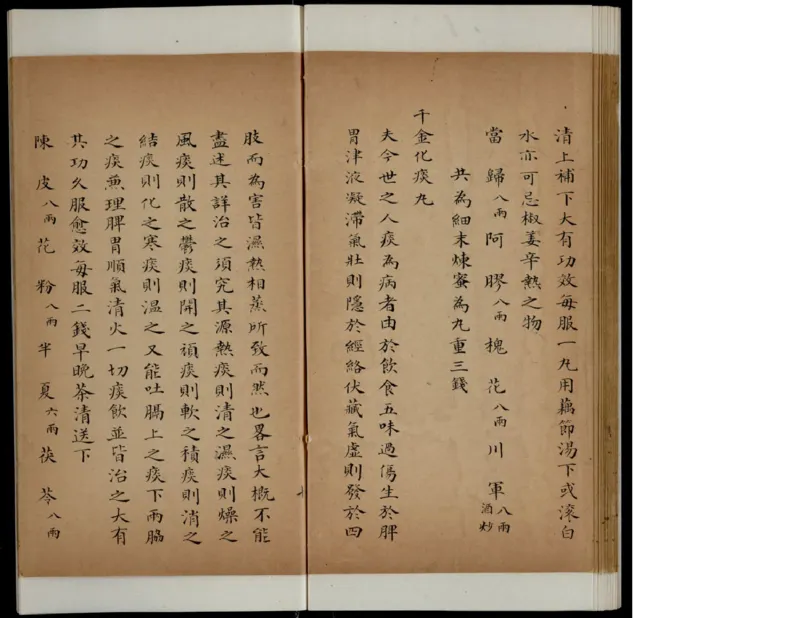 清上補下大有功效每服一丸用藕節湯下或滾白
水亦可忌椒姜辛熱之物
當歸八兩阿膠八兩槐花八兩川軍八兩酒炒
共為細末煉蜜為丸重三錢
千金化痰丸
夫今世之人痰為病者由於飲食五味過傷生於脾
胃津液凝滯氣壯則隱於經絡伏藏氣虛則發於四
肢而為害皆濕熱相蒸所致而然也畧言大概不能
盡述其詳治之須究其源熱痰則清之濕痰則燥之
風痰則散之鬱痰則開之頑痰則軟之積痰則消之
結痰則化之寒痰則溫之又能吐膈上之痰下兩脇
之痰兼理脾胃順氣清火一切痰飲並皆治之大有
其功久服愈效每服二錢早晚茶清送下
陳皮八兩花粉八兩半夏六兩茯苓八兩